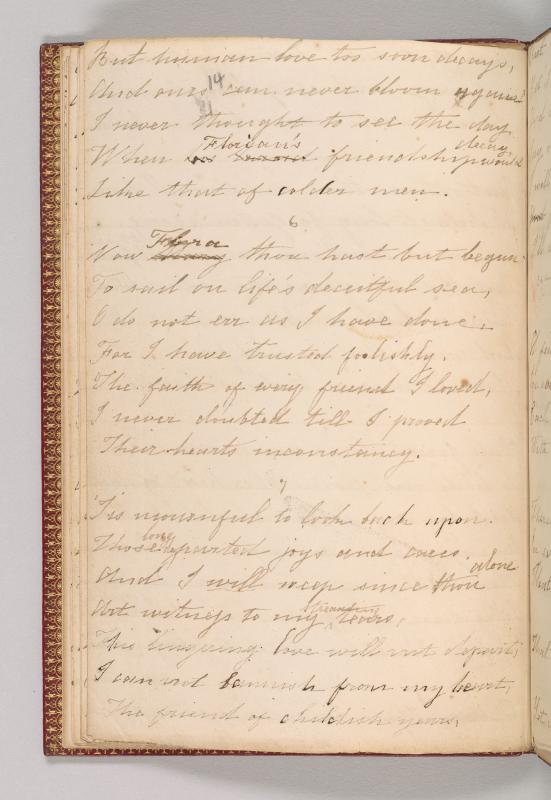 But human love too soon decays,
And ours can never bloom again.
14
21
I never thought to see the day
When Florian's friendship would decay
Like that of colder men.
6
Now Flora thou hast but begun
To sail on life's deceitful sea,
O do not err as I have done,
For I have trusted foolishly.
The faith of every friend I loved,
I never doubted till I proved
Their hearts inconstancy.
7
'Tis mournful to look back upon
Those long departed joys and cares.
And I will weep since thou alone
Art witness to my streaming tears,
This lingering love will not depart,
I cannot bannish from my heart,
The friend of childish years,